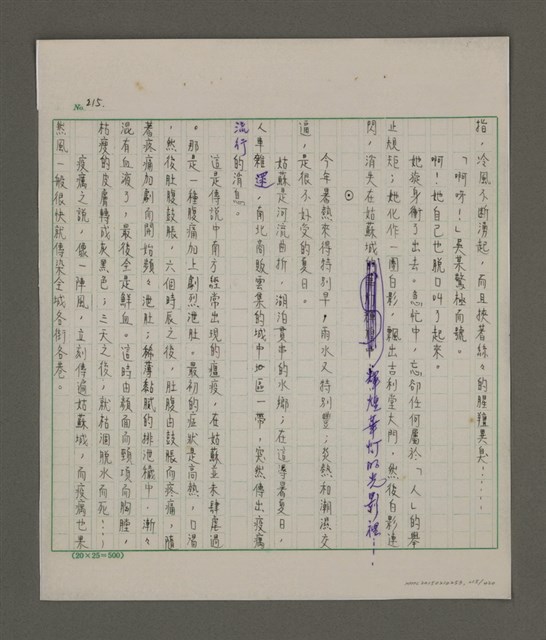 No. 215.
指，冷風不斷湧起，而且挾著絲々的腥羶異臭‥‥‥
「啊呀！」吳某驚極而號。
啊！她自己也脫口叫了起來。
她旋身衝了出去。急忙中，忘卻任何屬於「人」的舉
止規矩；她化作一團白影，飄出吉利堂大門，然後白影連
閃，消失在姑蘇城的輝煌華灯的光影裡‥‥
⊙
今年暑熱來得特別早，雨水又特別豐；炎熱和潮濕交
逼，是很不好受的夏日。
姑蘇是河流曲折，湖泊貫串的水鄉；在這溽暑夏日，
人車雜遝，南北商販雲集的城中心區一帶，突然傳出疫癘
流行的消息。
這是傳說中南方經常出現的瘟疫，在姑蘇並未肆虐過
。那是一種腹痛加上劇烈泄肚。最初的症狀是高熱，口渴
，然後肚腹鼓脹，六個時辰之後，肚腹由鼓脹而疼痛，隨
著疼痛加劇而開始頻々泄肚；稀薄黏膩的排泄穢中，漸々
混有血液了，最後全是鮮血。這時由額面而頸項而胸膛，
枯瘦的皮膚轉成灰黑色；三天之後，就枯涸脫水而死‥‥
疫癘之說，像一陣風，立刻傳遍姑蘇城，而疫癘也果
然風一般很快就傳染全城各街各巷。
(20×25=500)